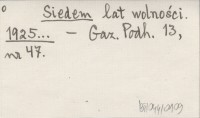 Siedem lat wolności.
1925... — Gaz. Podh. 13,
nr 47.